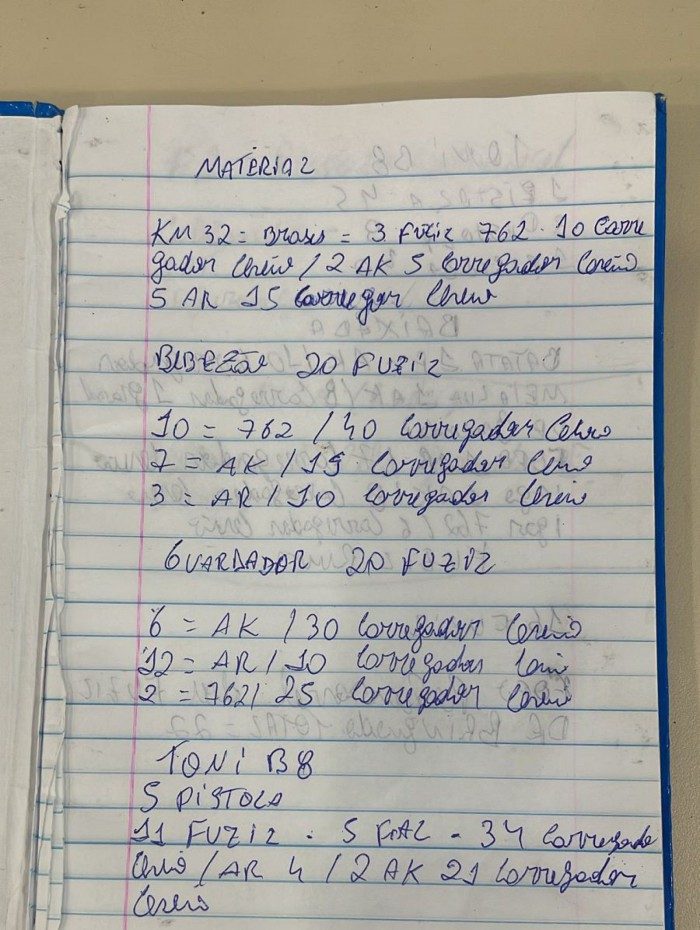 MATERIAL
KM 32 = Brasis = 3 FUZIZ 762 . 10 Carre
gador Cheio / 2 AK 5 Carregador Cheio
5 AR 15 Carregar Cheio
BIBEZÃO 20 FUZIZ
10 = 762 / 40 Carregador Cheio
7 = AK / 15 Carregador Cheio
3 = AR / 10 Carregador Cheio
GUARDADOR 20 FUZIZ
6 = AK / 30 Carregador Cheio
12 = AR / 10 Carregador Cheio
2 = 762 / 25 Carregador Cheio
TONI B8
5 PISTOLA
11 FUZIZ . 5 FAL - 34 Carregado
Cheio / AR 4 / 2 AK 21 Carregador
Cheio